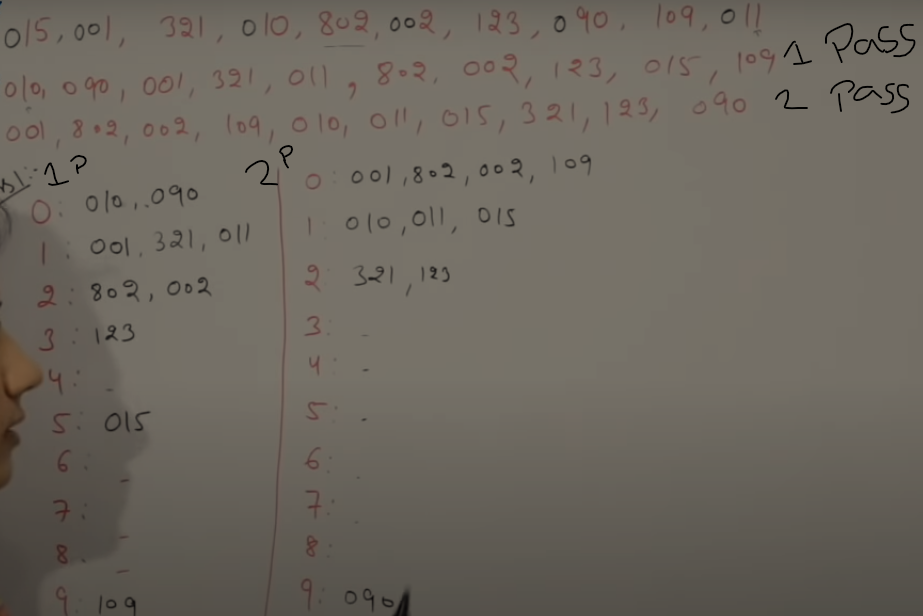 015, 001, 321, 010, 802, 002, 123, 090, 109, 011
010, 090, 001, 321, 011, 802, 002, 123, 015, 109 1 Pass
001, 802, 002, 109, 010, 011, 015, 321, 123, 090 2 Pass
1P
0: 010, 090
1: 001, 321, 011
2: 802, 002
3: 123
4: -
5: 015
6: -
7: -
8. -
9: 109
2P
0: 001, 802, 002, 109
1: 010, 011, 015
2: 321, 123
3: -
4: -
5: -
6: .
7: .
8:
9: 090